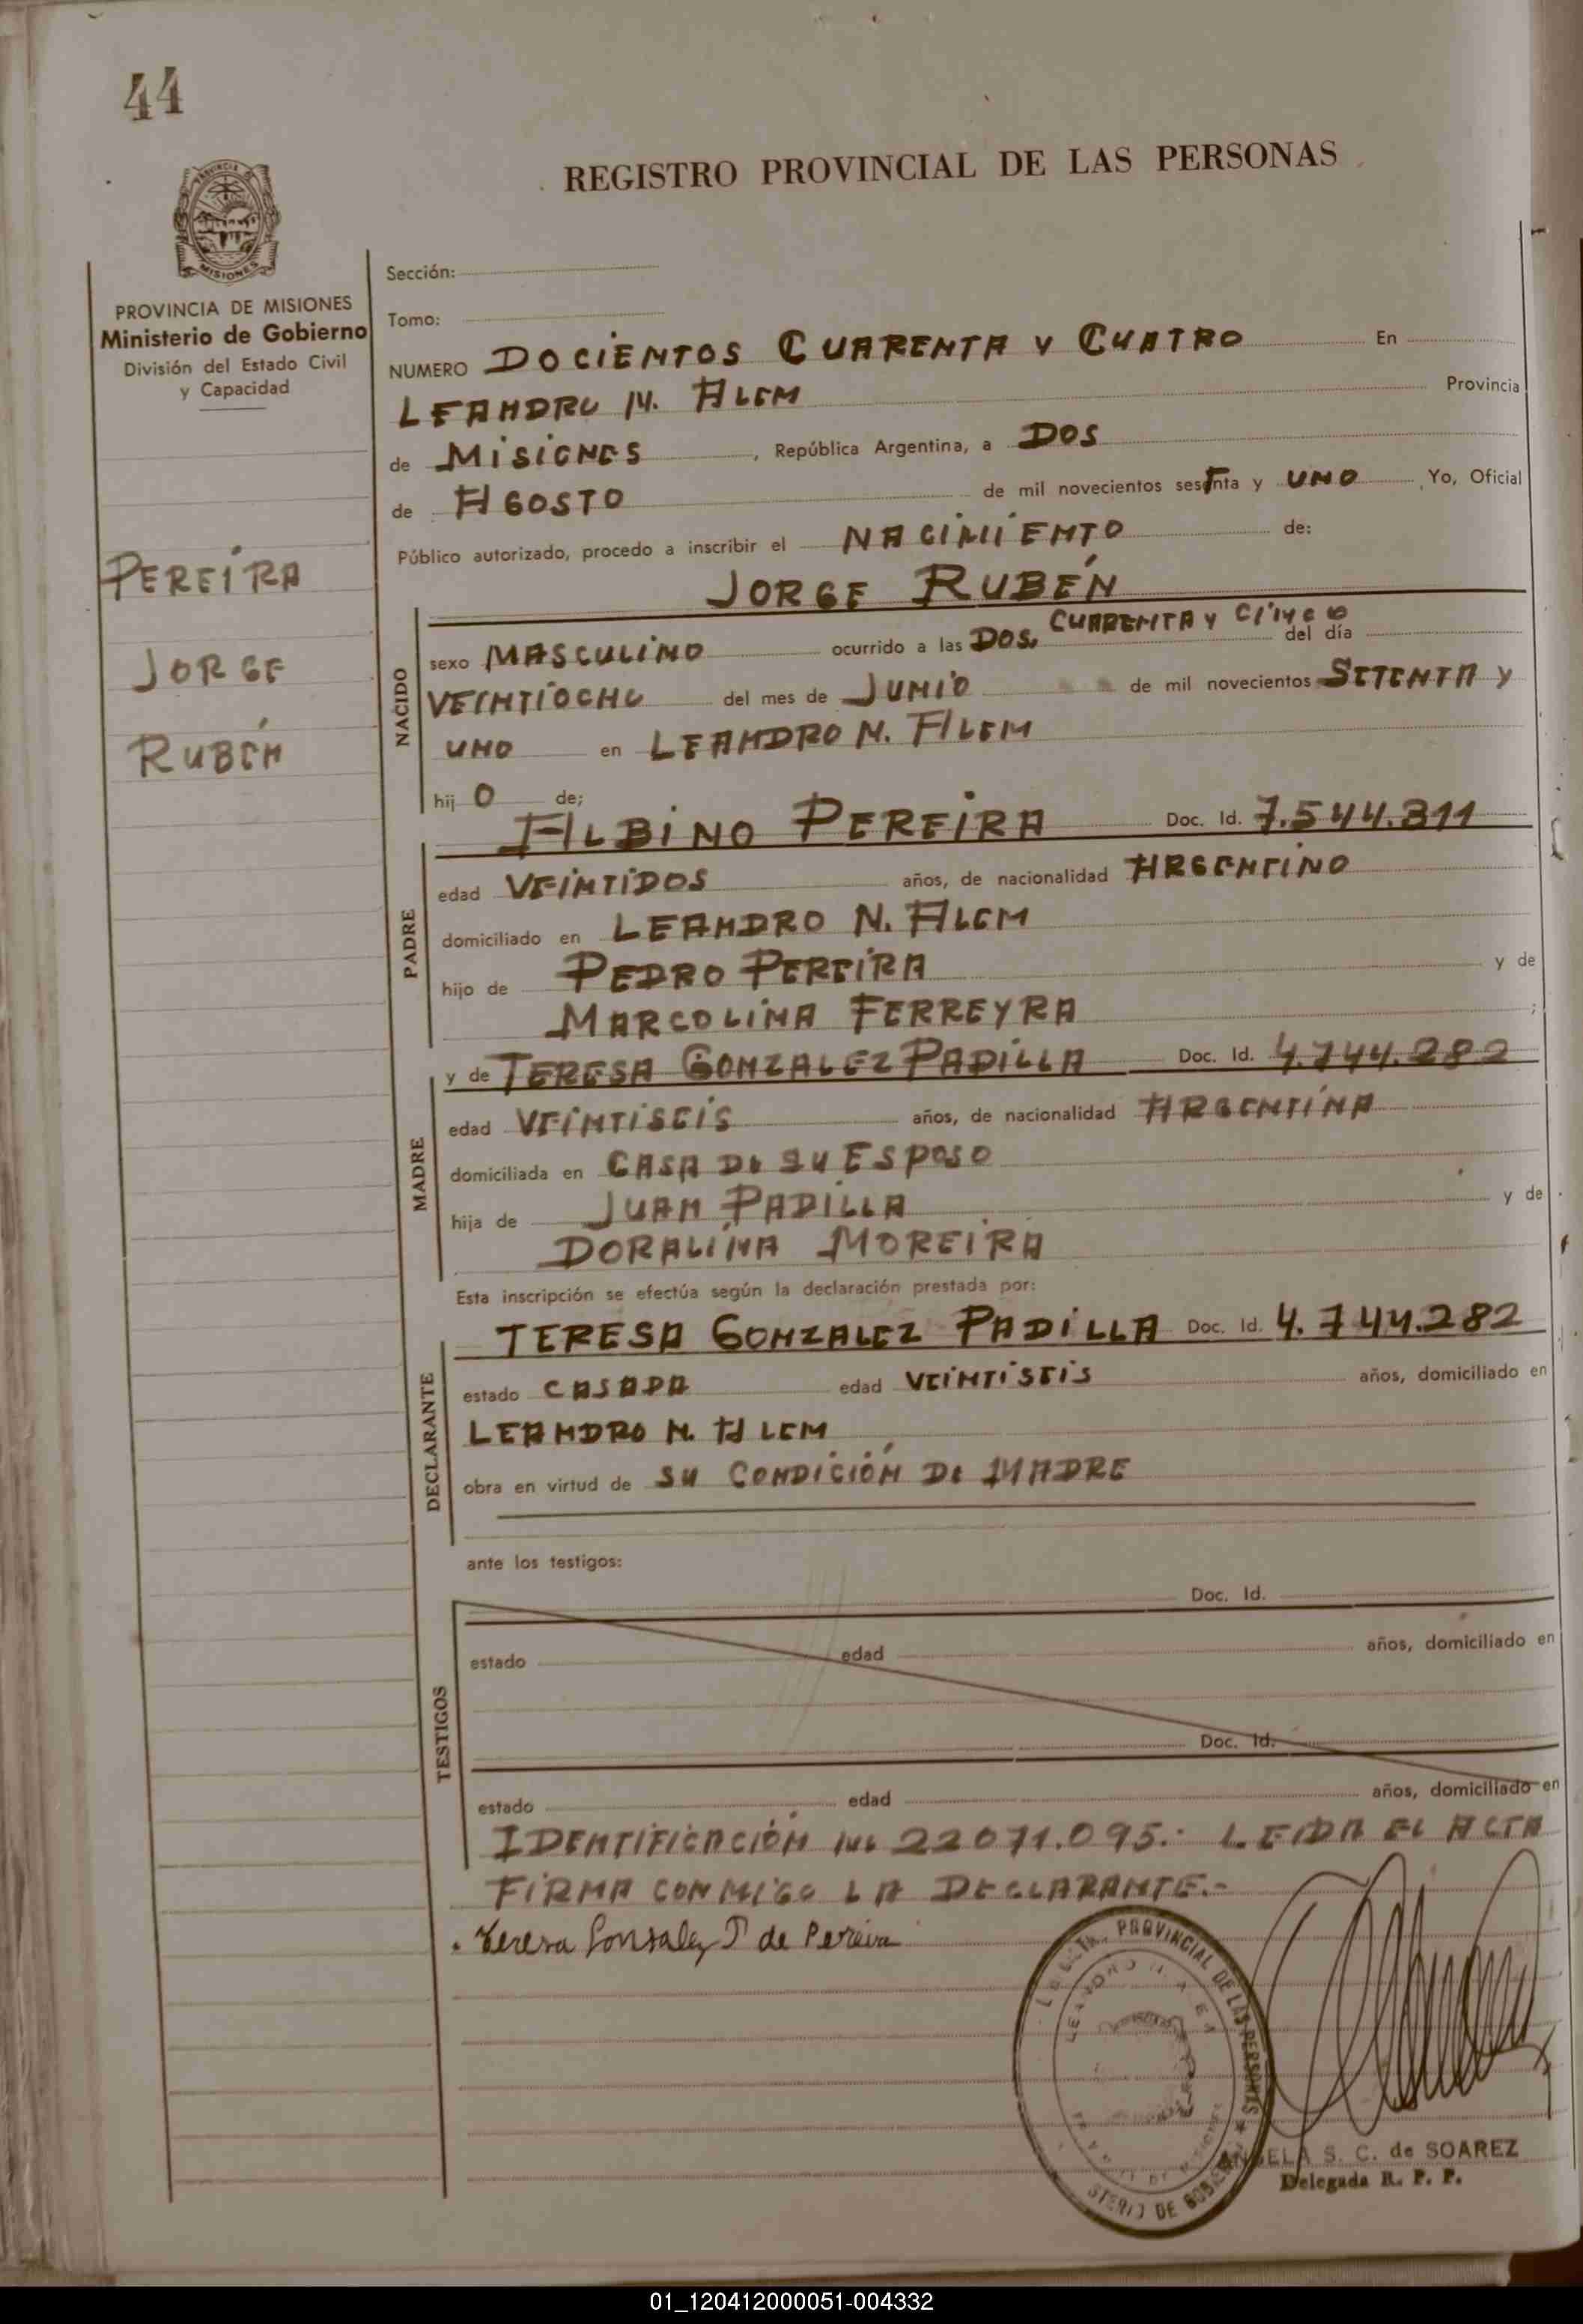 44
REGISTRO PROVINCIAL DE LAS PERSONAS
PROVINCIA DE MISIONES
Ministerio de Gobierno
División del Estado Civil
y Capacidad
PEREIRA
JORGE
RUBÉN
Sección:
Tomo:
NUMERO DOCIENTOS CUARENTA Y CUATRO En
LEANDRO N. ALEM Provincia
de MISIONES, República Argentina, a DOS
de AGOSTO de mil novecientos sesenta y UNO Yo, Oficial
Público autorizado, procedo a inscribir el NACIMIENTO de:
JORGE RUBÉN
NACIDO
sexo MASCULINO ocurrido a las DOS, CUARENTA Y CINCO del día
VEINTIOCHO del mes de JUNIO de mil novecientos SETENTA Y
UNO en LEANDRO N. ALEM
hij O de;
ALBINO PEREIRA Doc. Id. 7.544.311
PADRE
edad VEINTIDOS años, de nacionalidad ARGENTINO
domiciliado en LEANDRO N. ALEM
hijo de PEDRO PEREIRA y de
MARCOLINA FERREYRA ;
y de TERESA GONZALEZ PADILLA Doc. Id. 4.744.282
MADRE
edad VEINTISEIS años, de nacionalidad ARGENTINA
domiciliada en CASA DE SU ESPOSO
hija de JUAN PADILLA y de
DORALINA MOREIRA
Esta inscripción se efectúa según la declaración prestada por:
TERESA GONZALEZ PADILLA Doc. Id. 4.744.282
DECLARANTE
estado CASADA edad VEINTISEIS años, domiciliado en
LEANDRO N. ALEM
obra en virtud de SU CONDICIÓN DE MADRE
ante los testigos:
Doc. Id.
TESTIGOS
estado edad años, domiciliado en
Doc. Id.
estado edad años, domiciliado en
IDENTIFICACIÓN 22071.095.- LEIDA EL ACTA
FIRMA CONMIGO LA DECLARANTE.-
Teresa Gonsalez P de Pereira
PROVINCIAL DE LAS PERSONAS
ANGELA S. C. de SOAREZ
Delegada R. P. P.
01_120412000051-004332